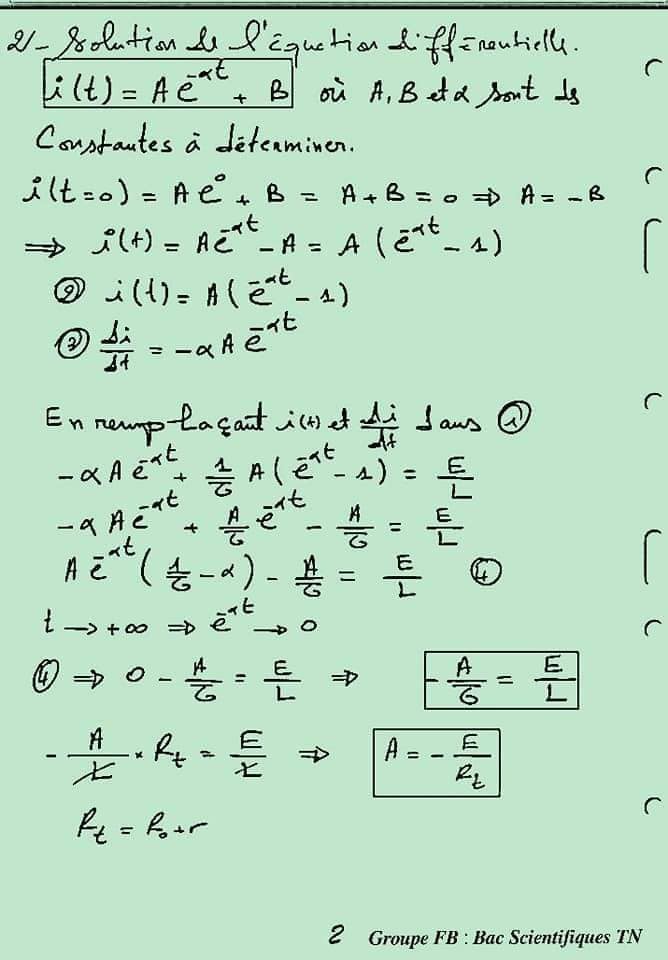 2/- Solution de l'équation différentielle.
i(t) = A e^{-αt} + B où A, B et α sont des
Constantes à déterminer.
i(t=0) = A e^0 + B = A + B = 0 ⇒ A = - B
⇒ i(t) = A e^{-αt} - A = A (e^{-αt} - 1)
② i(t) = A (e^{-αt} - 1)
③ di/dt = - α A e^{-αt}
En remplaçant i(t) et di/dt dans ①
- α A e^{-αt} + 1/τ A (e^{-αt} - 1) = E/L
- α A e^{-αt} + A/τ e^{-αt} - A/τ = E/L
A e^{-αt} (1/τ - α) - A/τ = E/L ④
t → +∞ ⇒ e^{-αt} → 0
④ ⇒ 0 - A/τ = E/L ⇒ - A/τ = E/L
- A/L × Rt = E/L ⇒ A = - E/Rt
Rt = R0 + r
2 Groupe FB : Bac Scientifiques TN